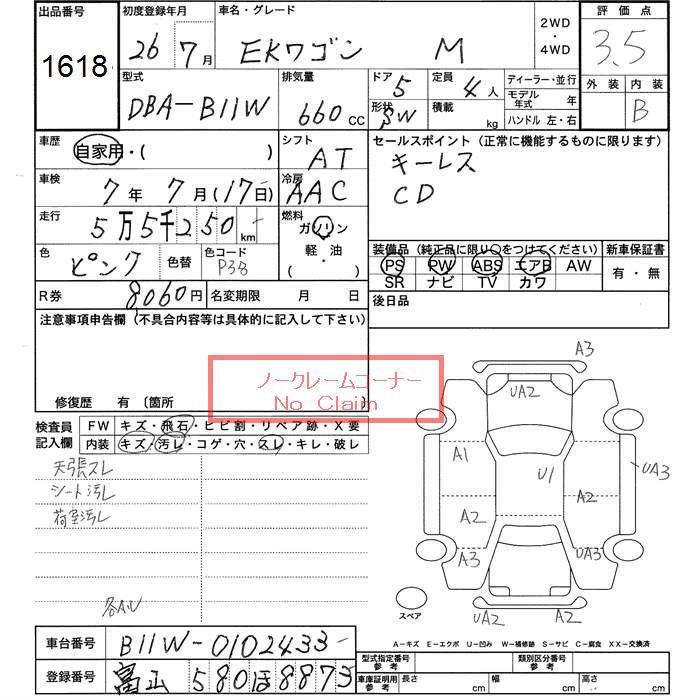 出品番号 初度登録年月 車名・グレード 2WD ・ 4WD 評価点
1618 26年7月 EKワゴン M 3.5
外装 内装
B
型式 排気量 ドア 5 定員 4人 ディーラー・並行
DBA-B11W 660cc 形状 SW 積載 kg モデル年式 年
ハンドル 左・右
車歴 自家用・( ) シフト AT セールスポイント (正常に機能するものに限ります)
キーレス
車検 7年7月(17日) 冷房 AAC CD
走行 5万5千250km 燃料 ガソリン
軽・油
・( )
色 ピンク 色替 色コード P38
装備品 (純正品に限り○をつけてください) 新車保証書
PS PW ABS エアB AW 有・無
SR ナビ TV カワ
R券 8060円 名変期限 月 日 後日品
注意事項申告欄 (不具合内容等は具体的に記入して下さい)
ノークレームコーナー
No Claim
修復歴 有 (箇所
検査員記入欄 FW キズ・飛石・ヒビ割・リペア跡・X要
内装 キズ・汚レ・コゲ・穴・スレ・キレ・破レ
天張スレ
シート汚レ
荷室汚レ
各A.U
A3
UA2
A1 U1 UA3
A2 A2
A3 UA3
UA2 A2
スペア
A-キズ E-エクボ U-凹み W-補修跡 S-サビ C-腐食 XX-交換済
車台番号 B11W-0102433
登録番号 富山 580 ほ 8873
型式指定番号 参考 類別区分番号 参考
車庫証明用 参考 長さ cm 幅 cm 高さ cm